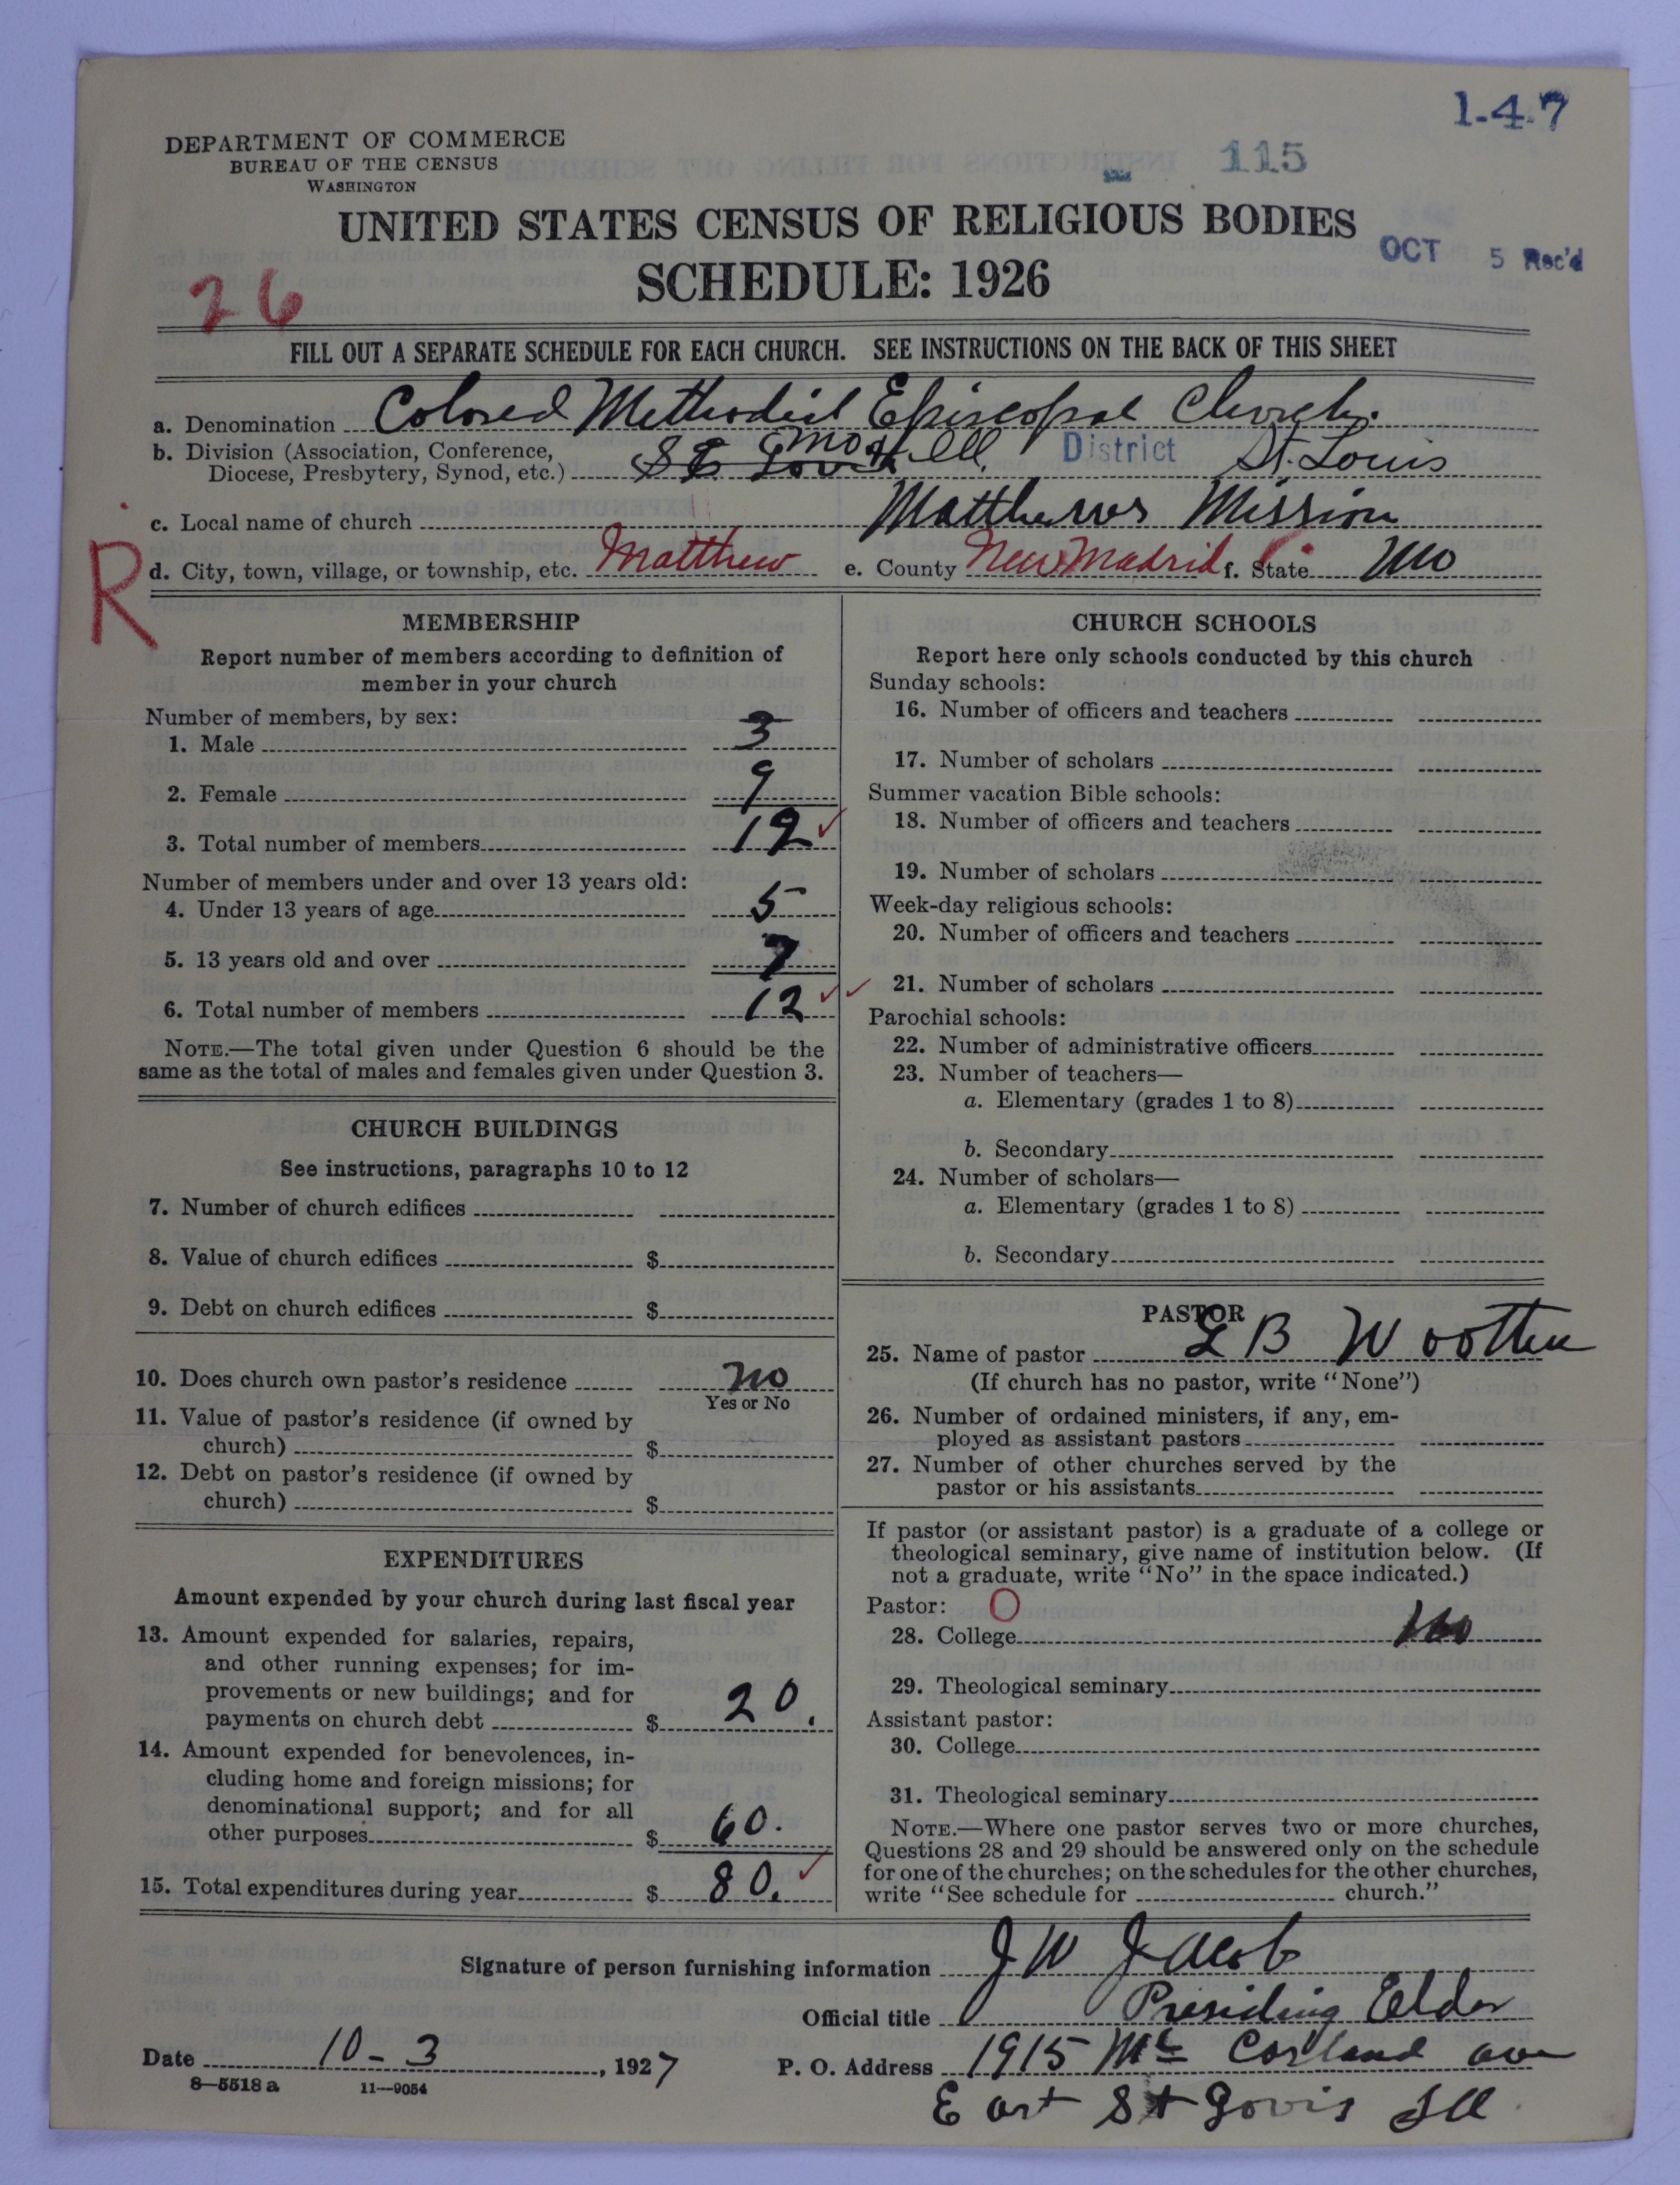 1-47
DEPARTMENT OF COMMERCE
BUREAU OF THE CENSUS
WASHINGTON
115
UNITED STATES CENSUS OF RELIGIOUS BODIES
SCHEDULE: 1926
OCT 5 Rec'd
26
FILL OUT A SEPARATE SCHEDULE FOR EACH CHURCH. SEE INSTRUCTIONS ON THE BACK OF THIS SHEET
a. Denomination Colored Methodist Episcopal Church.
b. Division (Association, Conference,
Diocese, Presbytery, Synod, etc.) St Louis Mo & Ill. District St. Louis
c. Local name of church Matthews Mission
R
d. City, town, village, or township, etc. Matthew e. County New Madrid f. State Mo
MEMBERSHIP
Report number of members according to definition of
member in your church
Number of members, by sex:
1. Male 3
2. Female 9
3. Total number of members 12 ✓
Number of members under and over 13 years old:
4. Under 13 years of age 5
5. 13 years old and over 7
6. Total number of members 12 ✓✓
NOTE.—The total given under Question 6 should be the
same as the total of males and females given under Question 3.
CHURCH BUILDINGS
See instructions, paragraphs 10 to 12
7. Number of church edifices
8. Value of church edifices $
9. Debt on church edifices $
10. Does church own pastor's residence no
Yes or No
11. Value of pastor's residence (if owned by
church) $
12. Debt on pastor's residence (if owned by
church) $
EXPENDITURES
Amount expended by your church during last fiscal year
13. Amount expended for salaries, repairs,
and other running expenses; for im-
provements or new buildings; and for
payments on church debt $ 20.
14. Amount expended for benevolences, in-
cluding home and foreign missions; for
denominational support; and for all
other purposes $ 60.
15. Total expenditures during year $ 80. ✓
CHURCH SCHOOLS
Report here only schools conducted by this church
Sunday schools:
16. Number of officers and teachers
17. Number of scholars
Summer vacation Bible schools:
18. Number of officers and teachers
19. Number of scholars
Week-day religious schools:
20. Number of officers and teachers
21. Number of scholars
Parochial schools:
22. Number of administrative officers
23. Number of teachers—
a. Elementary (grades 1 to 8)
b. Secondary
24. Number of scholars—
a. Elementary (grades 1 to 8)
b. Secondary
PASTOR
25. Name of pastor L B Wootten
(If church has no pastor, write "None")
26. Number of ordained ministers, if any, em-
ployed as assistant pastors
27. Number of other churches served by the
pastor or his assistants
If pastor (or assistant pastor) is a graduate of a college or
theological seminary, give name of institution below. (If
not a graduate, write "No" in the space indicated.)
Pastor: O
28. College No
29. Theological seminary
Assistant pastor:
30. College
31. Theological seminary
NOTE.—Where one pastor serves two or more churches,
Questions 28 and 29 should be answered only on the schedule
for one of the churches; on the schedules for the other churches,
write "See schedule for church."
Signature of person furnishing information J W Jacob
Official title Presiding Elder
Date 10-3, 1927 P. O. Address 1915 Mc Casland ave
8-5518 a 11-9054
East St Louis Ill.